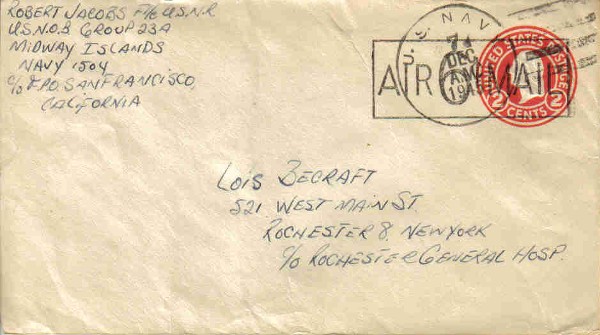 ROBERT JACOBS F1/c U.S.N.R
U.S.N.O.B GROUP 23A
MIDWAY ISLANDS
NAVY 1504
c/o F.P.O. SAN FRANCISCO,
CALIFORNIA
U.S. NAVY
7
DEC
A.M.
AIR MAIL
6
UNITED STATES POSTAGE
2 2
CENTS
LOIS BECRAFT
521 WEST MAIN ST.
ROCHESTER 8, NEW YORK
c/o ROCHESTER GENERAL HOSP.